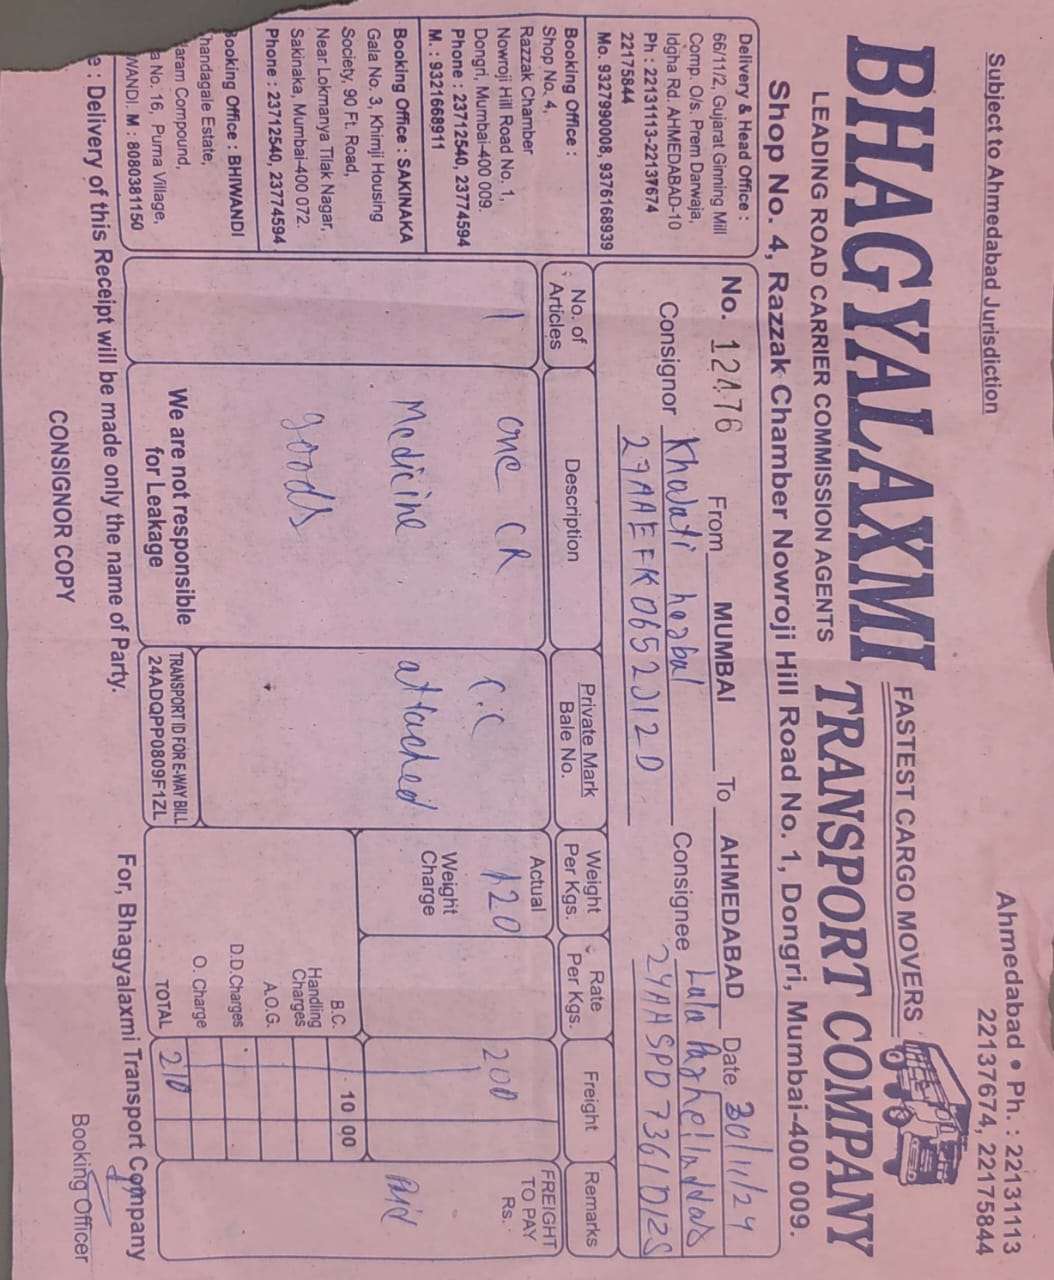 Subject to Ahmedabad Jurisdiction
Ahmedabad • Ph. : 22131113
22137674, 22175844
BHAGYALAXMI TRANSPORT COMPANY
FASTEST CARGO MOVERS
LEADING ROAD CARRIER COMMISSION AGENTS
Shop No. 4, Razzak Chamber Nowroji Hill Road No. 1, Dongri, Mumbai-400 009.
Delivery & Head Office :
66/11/2, Gujarat Ginning Mill
Comp. O/s. Prem Darwaja,
Idgha Rd. AHMEDABAD-10
Ph : 22131113-22137674
22175844
Mo. 9327990008, 9376168939
Booking Office :
Shop No. 4,
Razzak Chamber
Nowroji Hill Road No. 1,
Dongri, Mumbai-400 009.
Phone : 23712540, 23774594
M. : 9321668911
Booking Office : SAKINAKA
Gala No. 3, Khimji Housing
Society, 90 Ft. Road,
Near Lokmanya Tilak Nagar,
Sakinaka, Mumbai-400 072.
Phone : 23712540, 23774594
Booking Office : BHIWANDI
handagale Estate,
aram Compound,
a No. 16, Purna Village,
WANDI. M : 8080381150
No. 12476 From MUMBAI To AHMEDABAD Date 30/11/24
Consignor Khadati herbal Consignee Lala
27AAEFK0652J1ZD
No. of Articles Description Private Mark Bale No. Weight Per Kgs. Rate Per Kgs. Freight Remarks
1 one CR C.C Actual 120 200 FREIGHT TO PAY Rs.
Medicine attached Weight Charge Paid
goods
B.C. 10 00
Handling Charges
A.O.G.
D.D.Charges
O. Charge
TOTAL 210
We are not responsible
for Leakage
TRANSPORT ID FOR E-WAY BILL
24ADQPP0809F1ZL
e : Delivery of this Receipt will be made only the name of Party.
For, Bhagyalaxmi Transport Company
CONSIGNOR COPY
Booking Officer